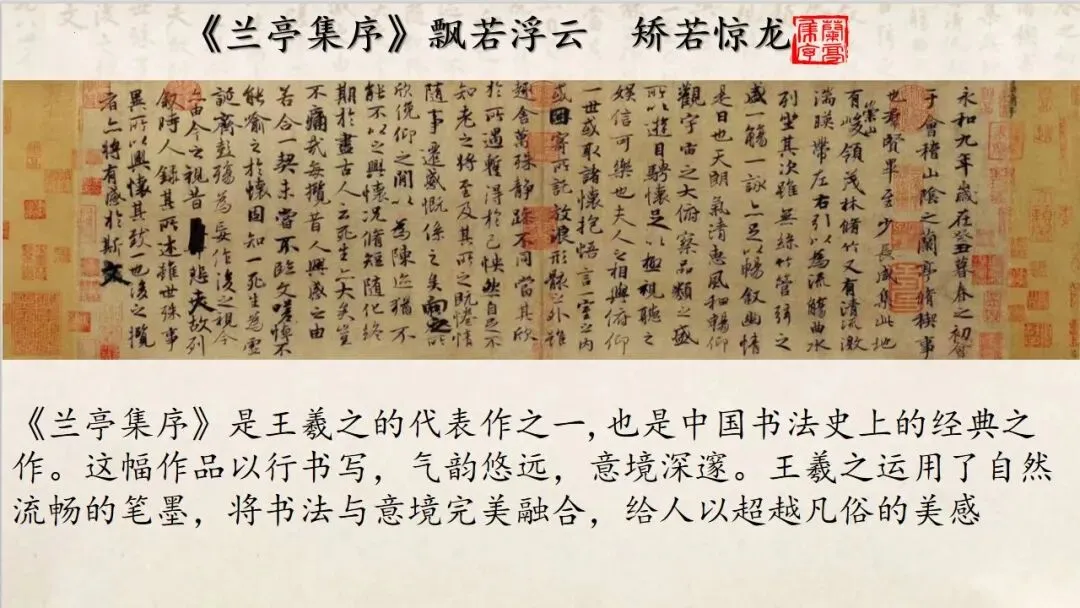 《兰亭集序》飘若浮云 矫若惊龙
蘭亭集序
永和九年歲在癸丑暮春之初會
于會稽山陰之蘭亭脩稧事
也羣賢畢至少長咸集此地
有崇山峻領茂林脩竹又有清流激
湍暎帶左右引以為流觴曲水
列坐其次雖無絲竹管弦之
盛一觴一詠亦足以暢敘幽情
是日也天朗氣清惠風和暢仰
觀宇宙之大俯察品類之盛
所以遊目騁懷足以極視聽之
娛信可樂也夫人之相與俯仰
一世或取諸懷抱悟言一室之內
或因寄所託放浪形骸之外雖
趣舍萬殊靜躁不同當其欣
於所遇暫得於己怏然自足不
知老之將至及其所之既惓情
隨事遷感慨係之矣向之所
欣俛仰之閒以為陳迹猶不
能不以之興懷況脩短隨化終
期於盡古人云死生亦大矣豈
不痛哉每攬昔人興感之由
若合一契未嘗不臨文嗟悼不
能喻之於懷固知一死生為虛
誕齊彭殤為妄作後之視今
亦由今之視昔悲夫故列
敘時人錄其所述雖世殊事
異所以興懷其致一也後之攬
者亦將有感於斯文
《兰亭集序》是王羲之的代表作之一,也是中国书法史上的经典之
作。这幅作品以行书写，气韵悠远，意境深邃。王羲之运用了自然
流畅的笔墨，将书法与意境完美融合，给人以超越凡俗的美感